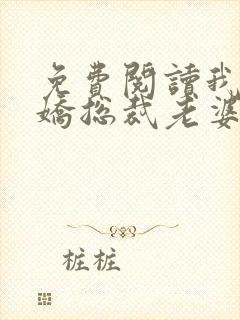 免費閱讀我
嬌總裁老婆
桩桩